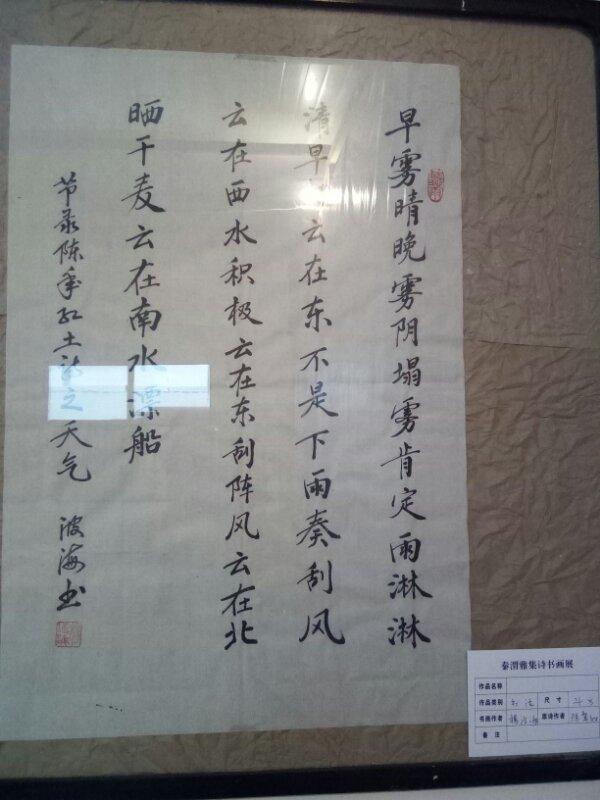 早雾晴晚雾阴塌雾肯定雨淋淋
清早云在东不是下雨奏刮风
云在西水积极云在东刮阵风云在北
晒干麦云在南水漂船
节录陈年红土之天气 波海书
秦渭雅集诗书画展
作品名称
作品类别 书法 尺寸 斗方
书画作者 原诗作者
备注